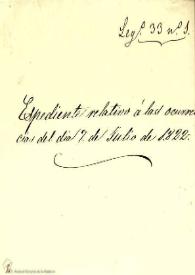 Leg.º 33 nº 1.
Expediente relativo á las ocurren
cias del dia 7 de Julio de 1822.